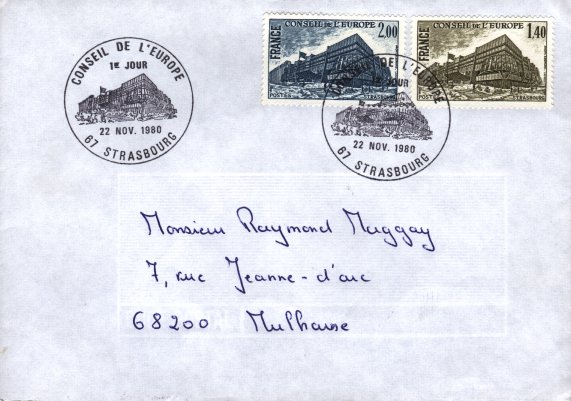 CONSEIL DE L'EUROPE
1er JOUR
22 NOV. 1980
67 STRASBOURG
FRANCE
CONSEIL DE L'EUROPE
2,00
STRASBOURG
FRANCE
CONSEIL DE L'EUROPE
1,40
STRASBOURG
CONSEIL DE L'EUROPE
1er JOUR
22 NOV. 1980
67 STRASBOURG
Monsieur Raymond Muggay
7, rue Jeanne-d'arc
68200 Mulhouse